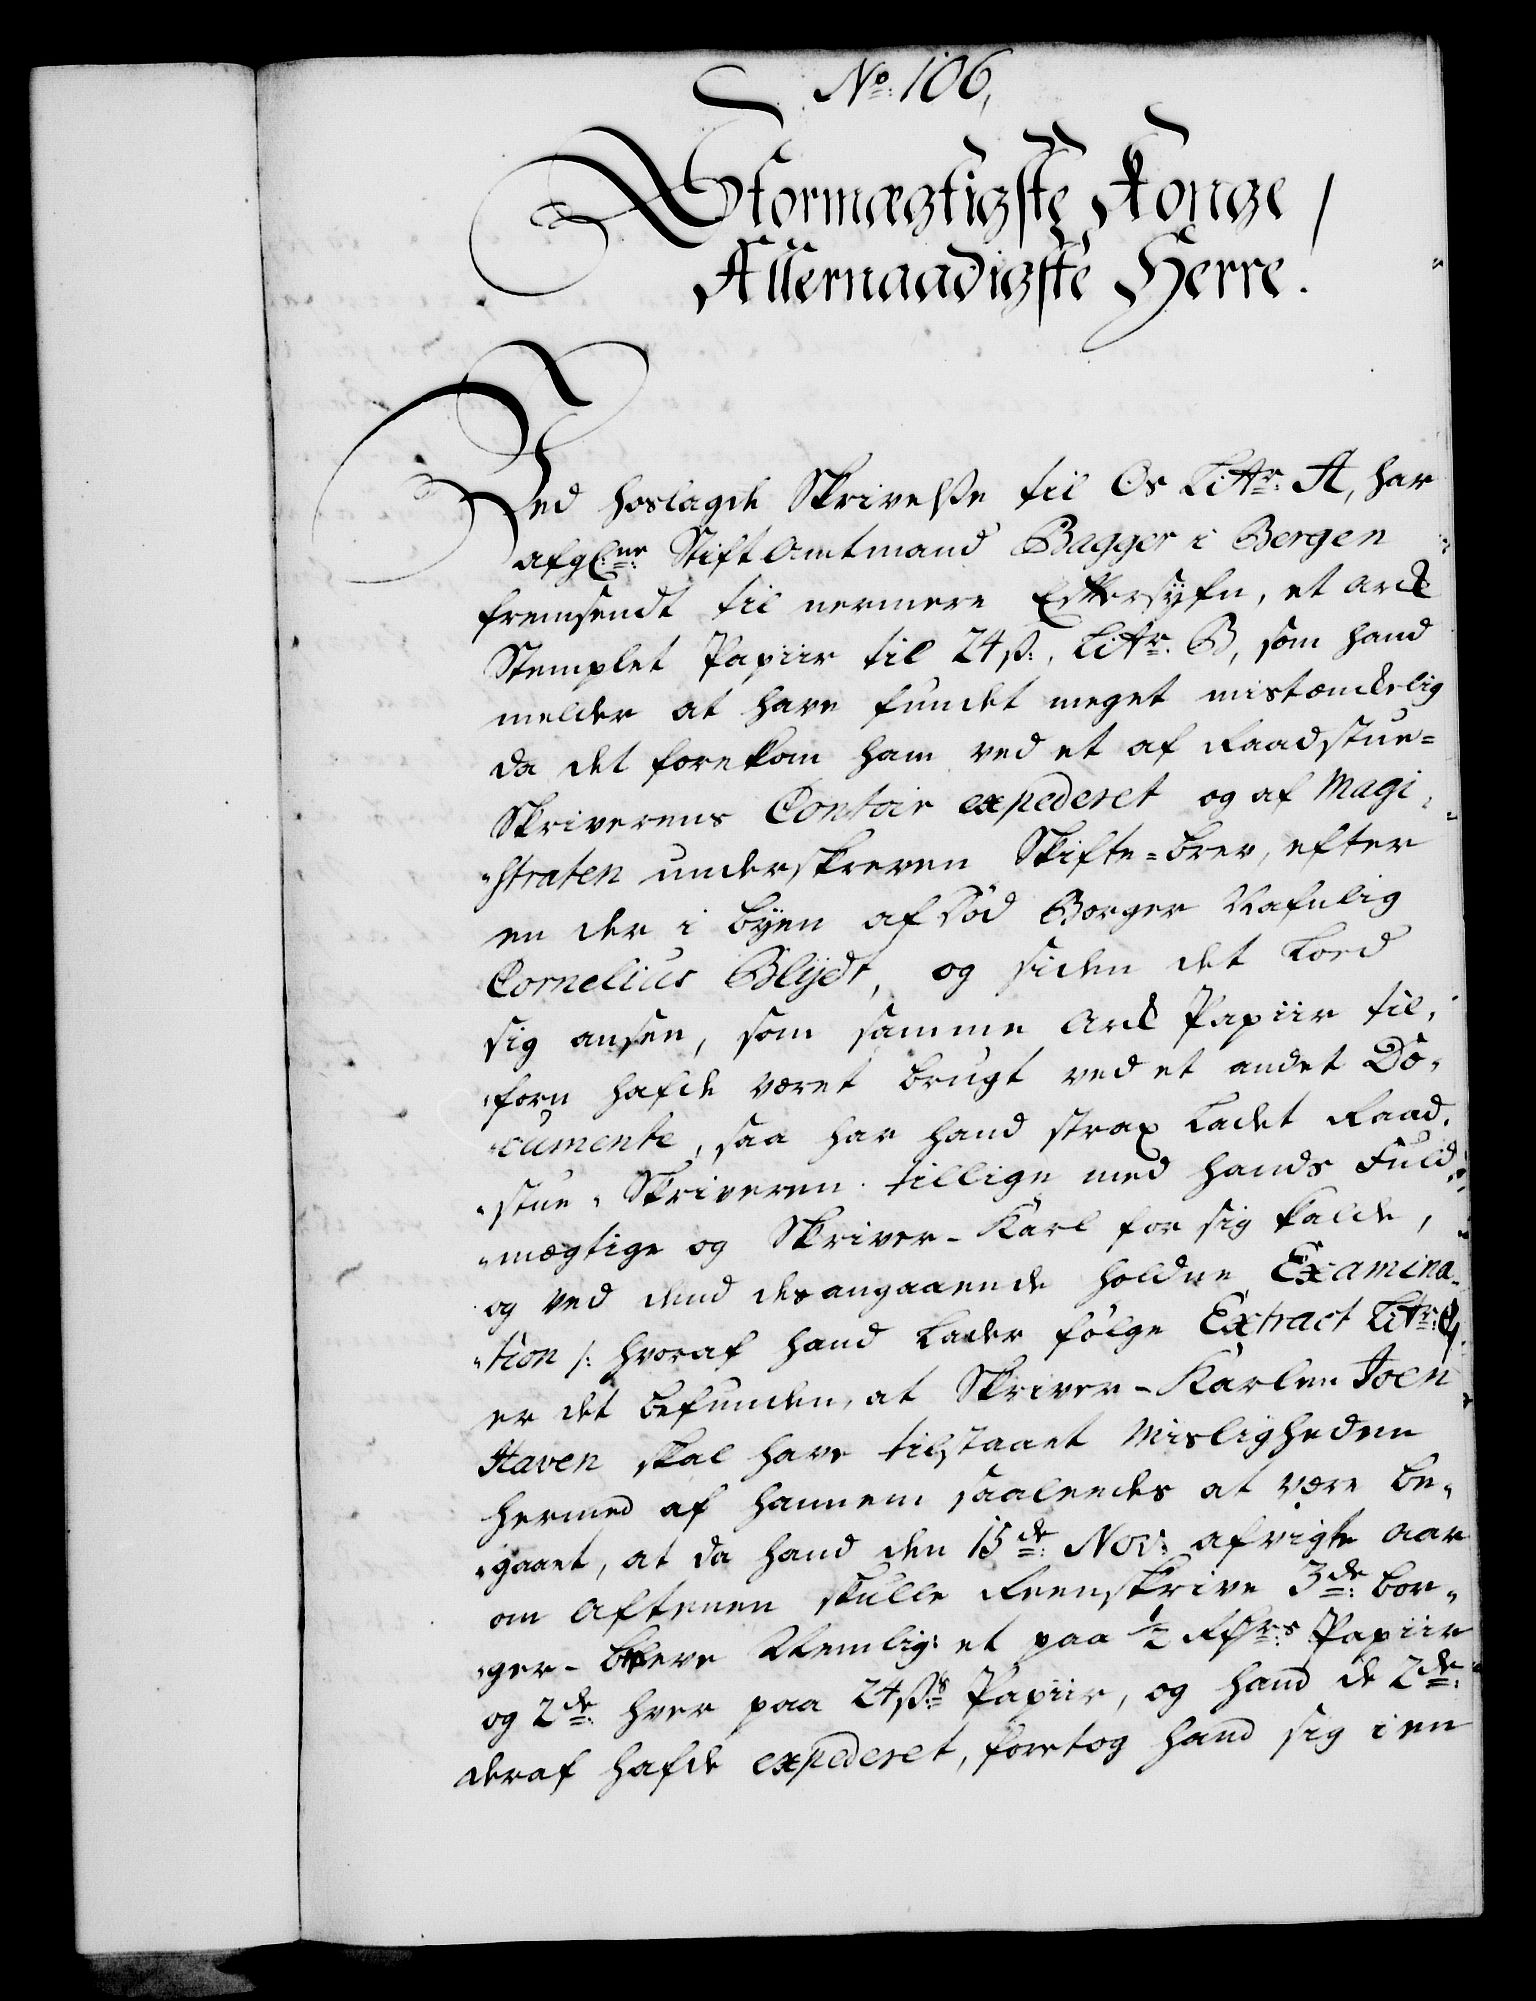 No: 106,
Stormægtigste Konge /
Allernaadigste Herre.
Ved hoslagde Skrivelsse til Os Littr: A, har
afgl:ne: Stiftamtmand Bagger i Bergen
fremsendt til nermere Eftersÿfn, et ark
Stemplet Papiir til 24 s:, Littr: B, som hand
melder at have fundet meget mistænkelig
da det forekom ham ved et af Raadstue=
Skriverens Contoir expederet og af Magi=
straten underskreven Skifte=brev, efter
en der i bÿen afdöd Borger Nafnlig
Cornelius Blÿdt, og siden det loed
sig ansee, som samme Ark Papiir til,
forn hafde været brugt ved et andet Do,
cumente, saa har hand strax ladet Raad,
stue, Skriveren tillige med hands Fuld,
mægtige og Skriver-Karl for sig kalde,
og ved dend desangaaende holdne Examina,
tion /: hvoraf hand lader følge Extract Littr: C,
er det befunden, at Skriver-Karlen Joen
Haven skal have tilstaaet Misligheden
hermed af hannem saaleedes at være be,
gaaet, at da hand den 15de: Nov: afvigte aar
om Aftenen skulle Reenskrive 3de: bor,
ger-breve Nemlig: et paa ½ Rdrs: Papiir
og 2de: hver paa 24 s: Papiir, og hand de 2de:
deraf hafde expederet, foretog hand sig i en